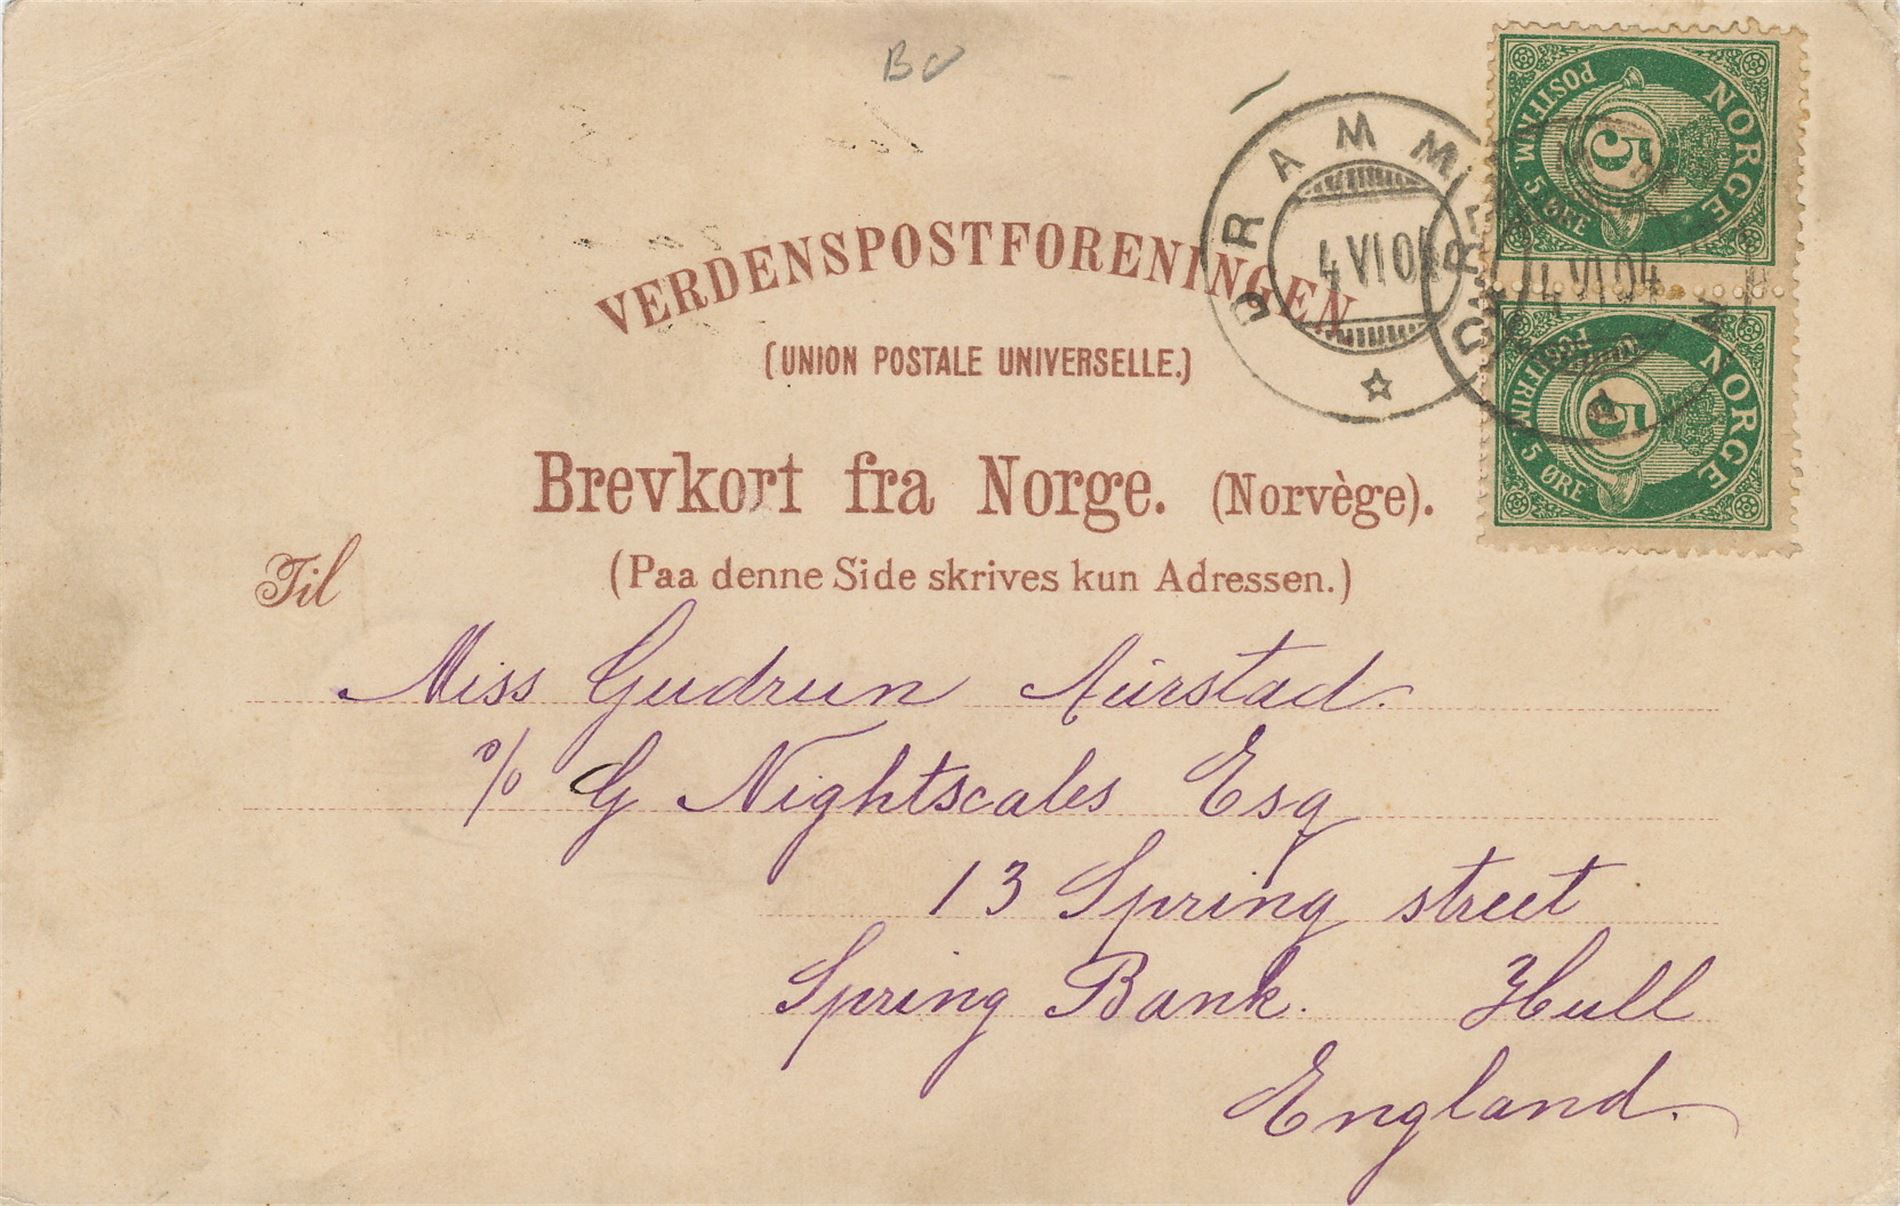 BC
NORGE
POSTFRIM 5 ØRE
5
NORGE
POSTFRIM. 5 ØRE
5
DRAMMEN
4 VI 04
DRAMMEN
4 VI 04
VERDENSPOSTFORENINGEN
(UNION POSTALE UNIVERSELLE.)
Brevkort fra Norge. (Norvège).
(Paa denne Side skrives kun Adressen.)
Til
Miss Gudrun Aurstad.
c/o G Nightscales Esq
13 Spring street
Spring Bank. Hull
England.